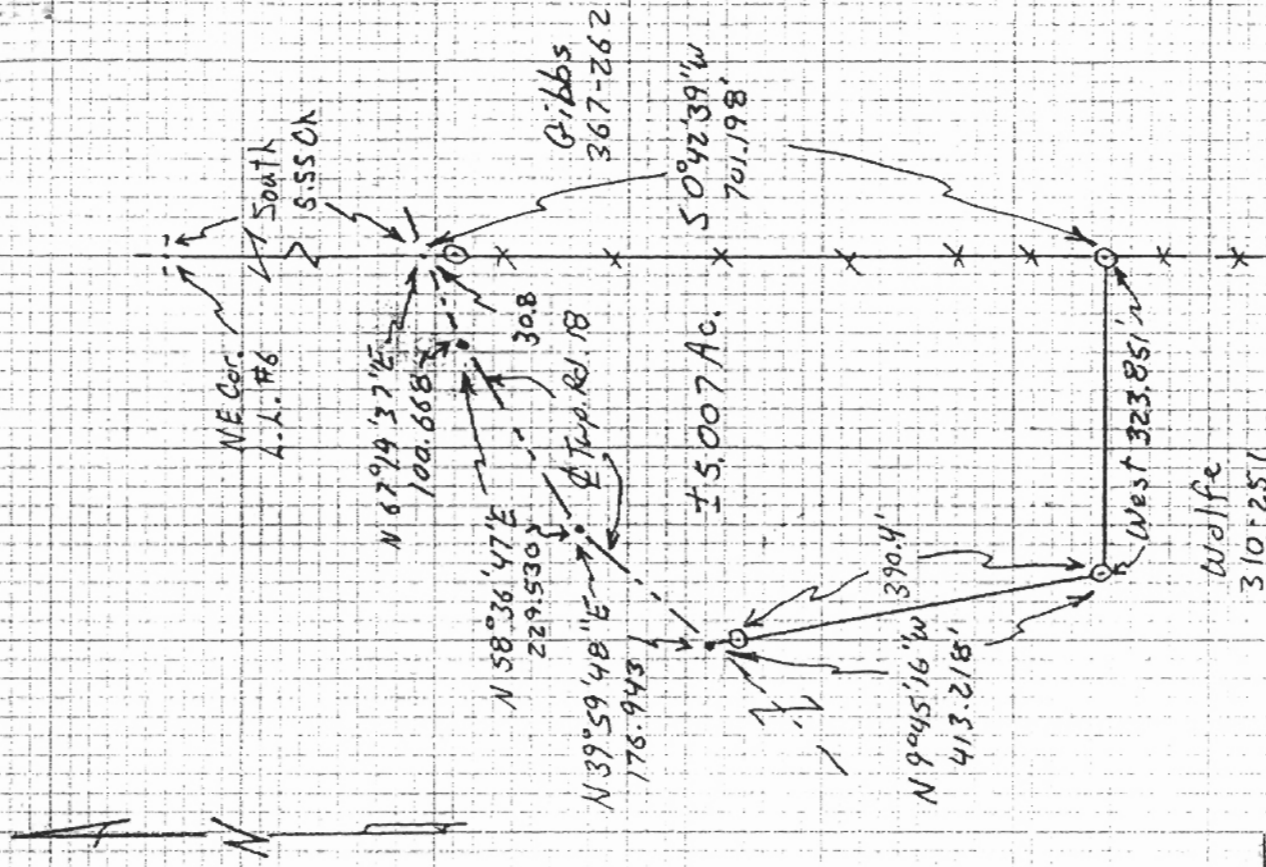 NE Cor.
L.L. #6
South
Gibbs
367-262
S 0°42'39"W
701.198'
30.8
¢ Twp. Rd. 18
N 58°36'47"E
229.530
N 39°59'48"E
176.943
± 5.007 Ac.
390.4'
N 9°45'16"W
413.218'
West 323.851'
Wolfe
310-251
N